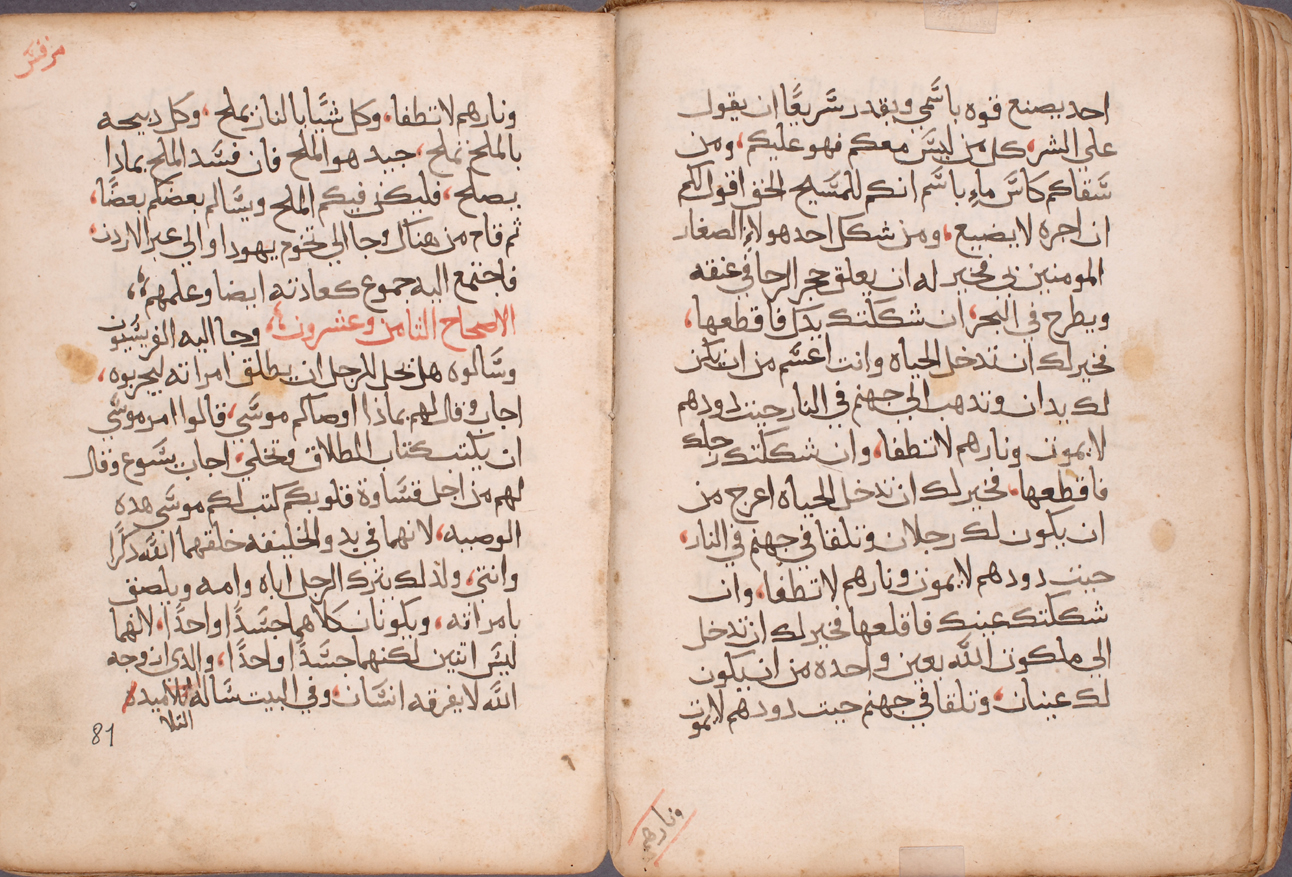 احد يصنع قوه باسمي ويقدر سريعًا ان يقول
على الشر، كل من ليس معكم فهو عليكم، ومن
سقاكم كاس ماء باسم انكم للمسيح الحق اقول لكم
ان اجره لا يضيع، ومن شكل احد هولاء الصغار
المومنين بي فخير له ان يعلق حجر الرحا في عنقه
ويطرح في البحر، ان شكلتك يدك فاقطعها،
فخير لك ان تدخل الحياه وانت اعسم من ان يكن
لك يدان وتدهب الى جهنم في النار حيت دودهم
لا يموت ونارهم لا تطفا، وان شكلتك رجلك
فاقطعها، فخير لك ان تدخل الحياه اعرج من
ان يكون لك رجلان وتلقا في جهنم في النار،
حيت دودهم لا يموت ونارهم لا تطفًا، وان
شكلتك عينك فاقلعها فخير لك ان تدخل
الي ملكوت الله بعين واحده من ان يكون
لك عينان، وتلقا في جهنم حيت دودهم لا يموت
ونارهم
مرقس
ونارهم لا تطفا، وكل شيًا بالنار يملح، وكل دبيحه
بالملح تملح، جيد هو الملح فان فسد الملح بمادا
يصلح، فليكن فيكم الملح ويسالم بعضكم بعضًا،
ثم قام من هناك وجا الي تخوم يهودا والي عبر الاردن،
فاجتمع اليه جموع كعادته ايضا وعلمهم،
الاصحاح التامن وعشرون، وجا اليه الفريسُيون
وسالوه هل يحل للرجل ان يطلق امراته ليجربوه،
اجاب وقال لهم بمادا اوصاكم موسى، قالوا امر موسي
ان يكتب كتاب الطلاق وتخلي، اجاب يسوع وقال
لهم من اجل قساوة قلوبكم كتب لكم موسى هده
الوصيه، لانهما في بدو الخليقه خلقهما الله دكرًا
وانتى، ولذلك يترك الرجل اباه وامه ويلصق
بامراته، ويكونان كلاهما جسدًا واحدًا، لانهما
ليس اتنين لكنهما جسدًا واحدًا، والدي ازوجه
الله لا يفرقه انسان، وفي البيت ساله تلاميده
81